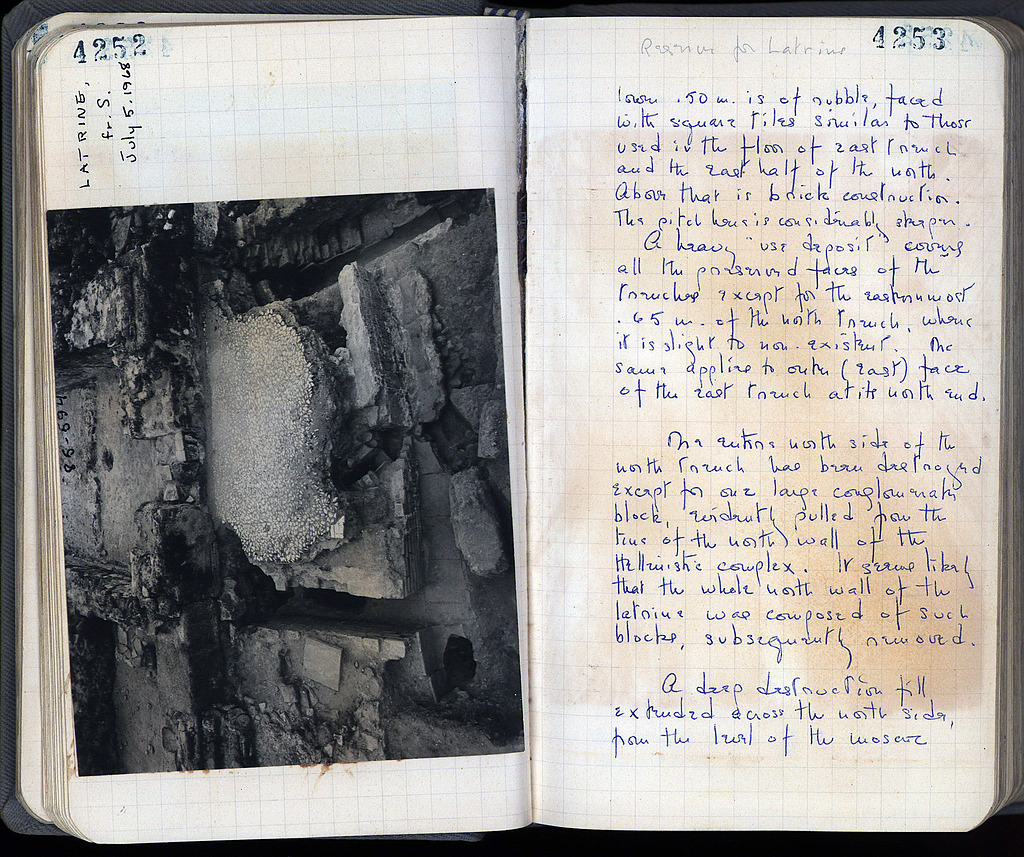 4252
LATRINE,
fr. S.
July 5. 1968
68-694
4253
Reserve for Latrine
lower .50 m. is of rubble, faced
with square tiles similar to those
used in the floor of east trench
and the east half of the north.
Above that is brick construction.
The pitch here is considerably steeper.
A heavy "use deposit" covers
all the preserved faces of the
trenches except for the easternmost
.65 m. of the north trench, where
it is slight to non-existent. The
same applies to outer (east) face
of the east trench at its north end.
The entire north side of the
north trench has been destroyed
except for one large conglomerate
block, evidently pulled from the
line of the north wall of the
Hellenistic complex. It seems likely
that the whole north wall of the
latrine was composed of such
blocks, subsequently removed.
A deep destruction fill
extended across the north side,
from the level of the mosaic